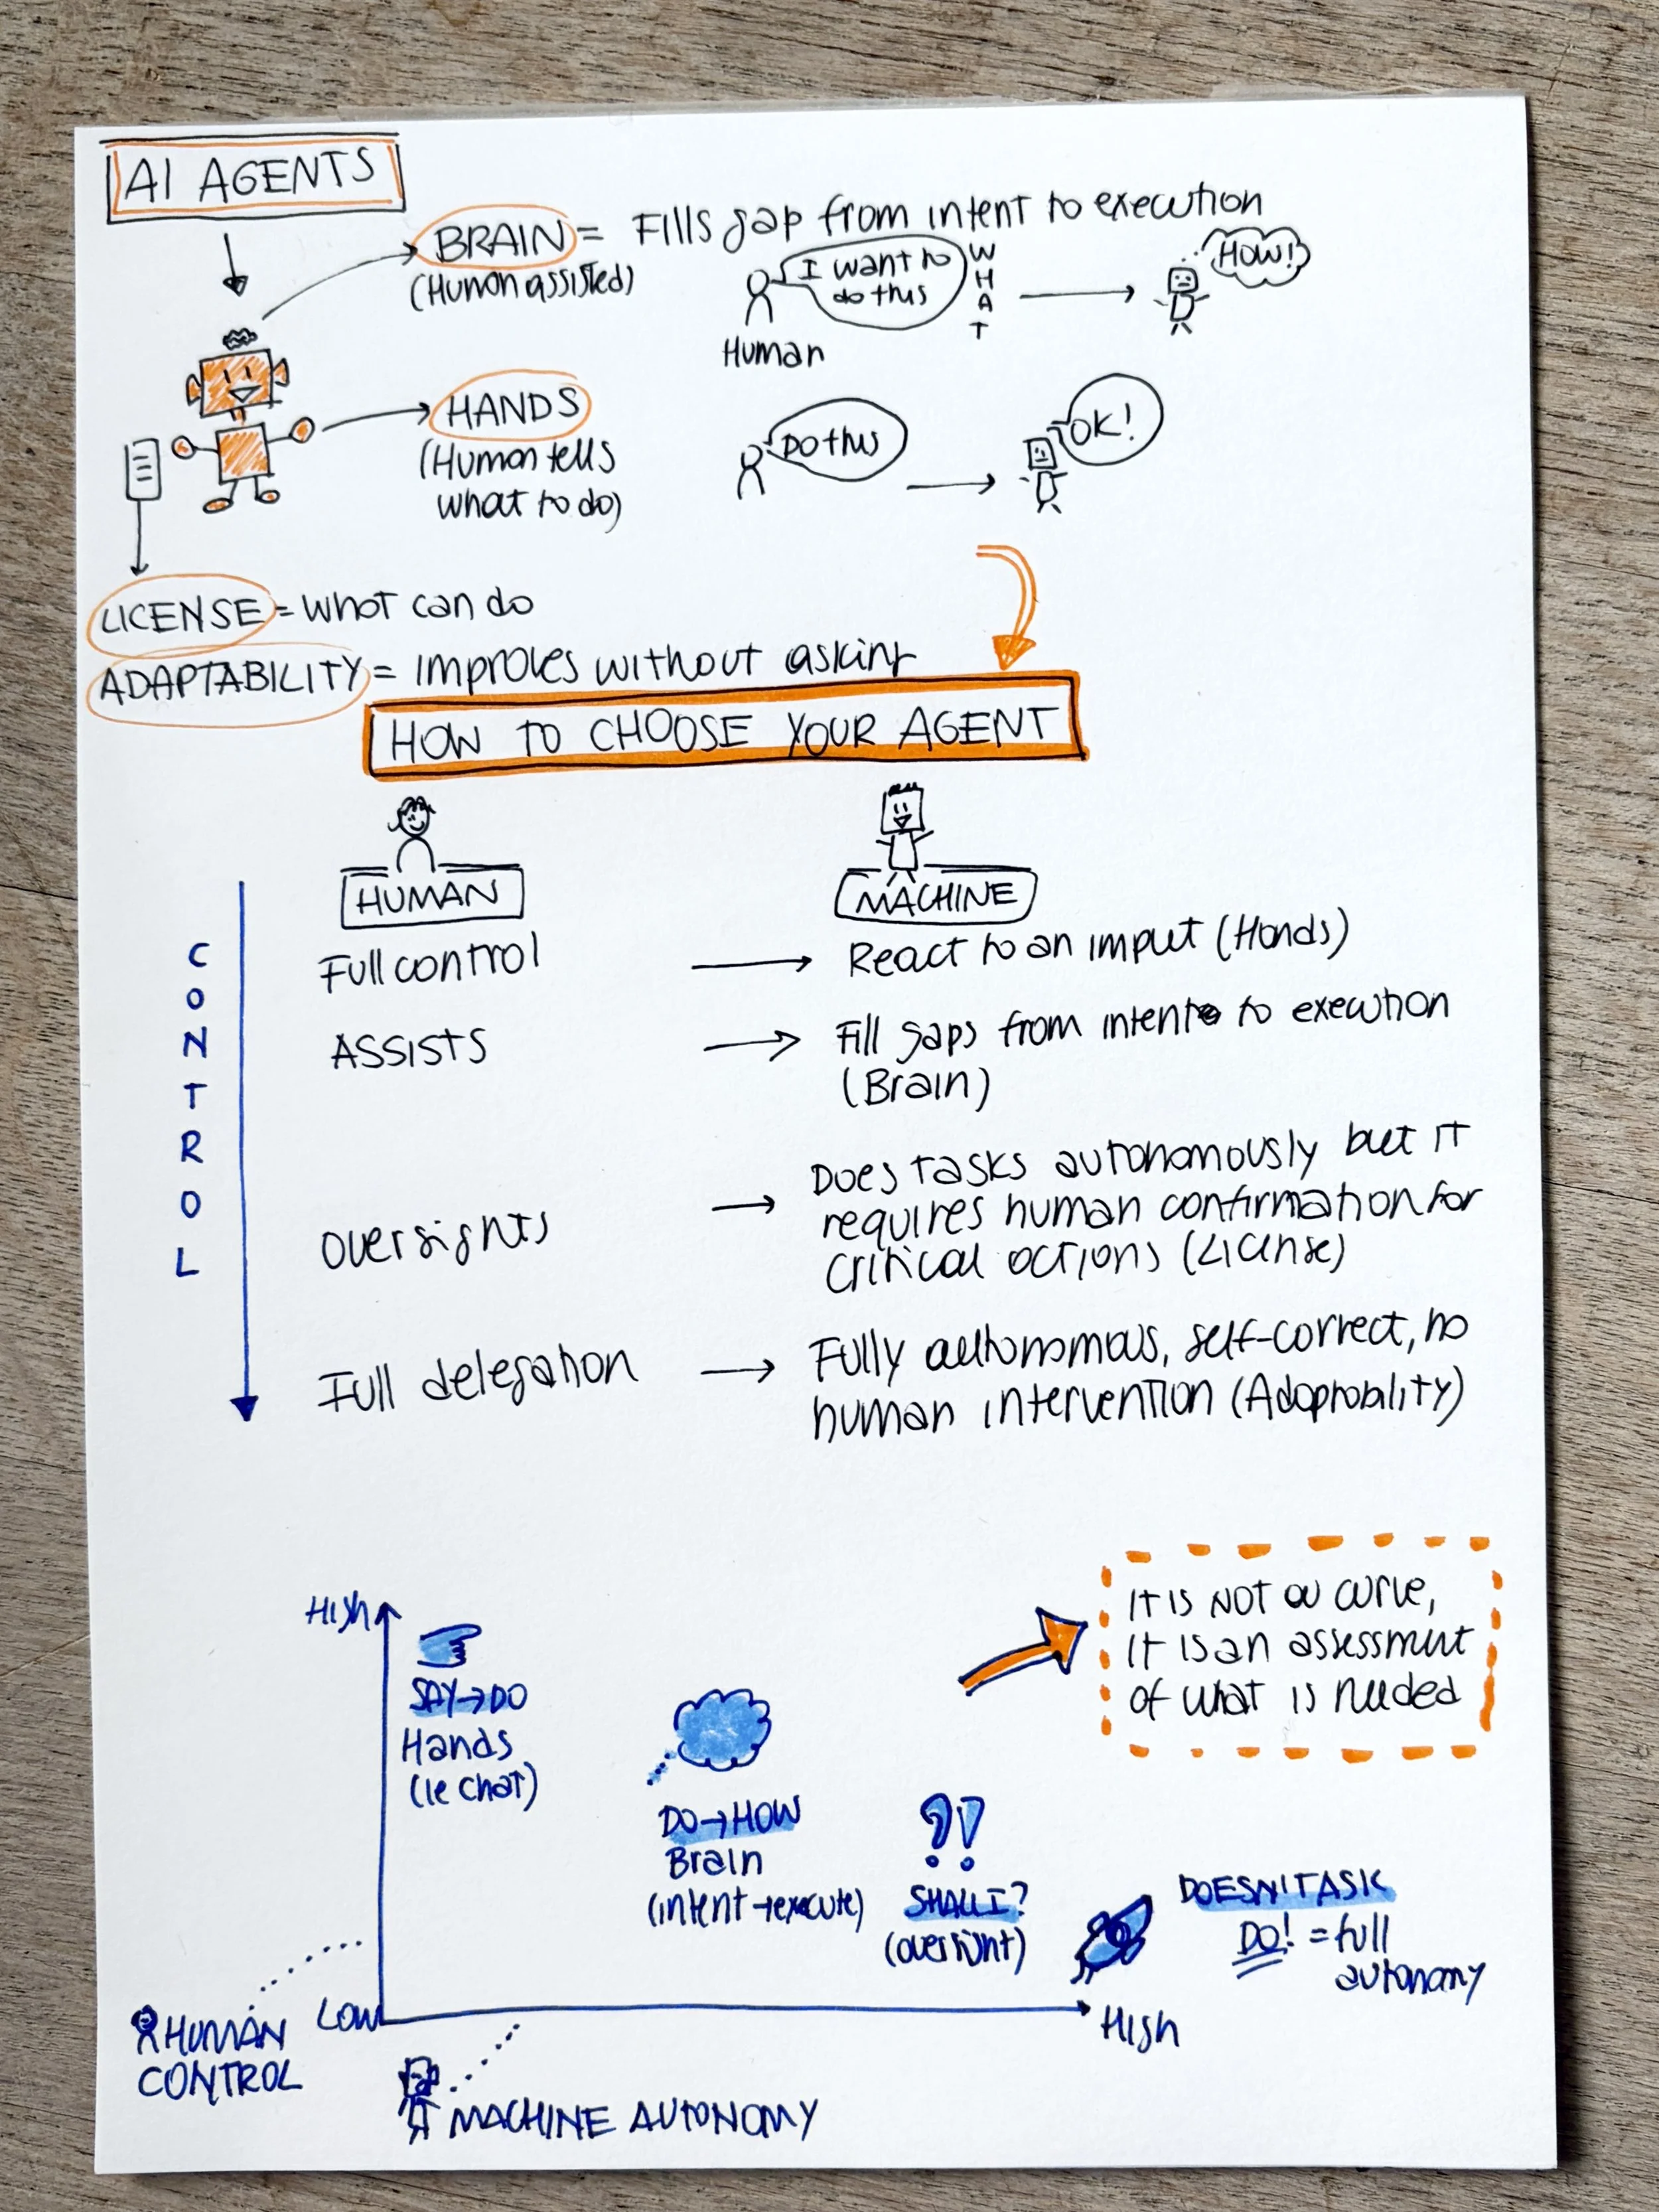 AI AGENTS
BRAIN = Fills gap from intent to execution
(Human assisted)
I want to
do this
WHAT
HOW!
Human
HANDS
(Human tells
what to do)
DO this
OK!
LICENSE = what can do
ADAPTABILITY = improves without asking
HOW TO CHOOSE YOUR AGENT
HUMAN
MACHINE
CONTROL
Full control
React to an imput (Hands)
ASSISTS
Fill gaps from intent to execution
(Brain)
Oversights
Does tasks autonomously but it
requires human confirmation for
critical actions (License)
Full delegation
Fully authonomous, self-correct, no
human intervention (Adaptability)
It is NOT a curve,
it is an assessment
of what is needed
High
SAY→DO
Hands
(le chat)
DO→HOW
Brain
(intent→execute)
SHALL I?
(oversight)
DOESN'T ASK
DO! = full
autonomy
Low
High
HUMAN
CONTROL
MACHINE AUTONOMY